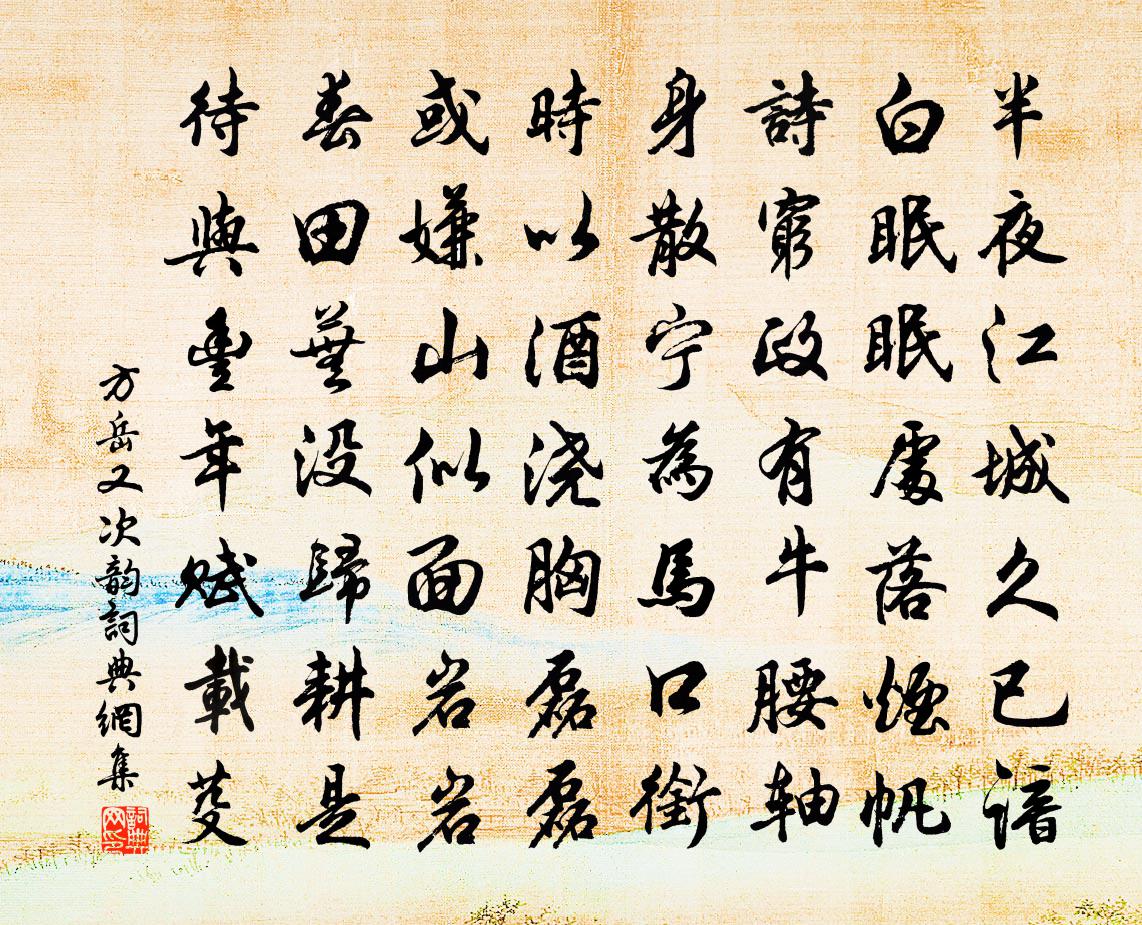 半夜江城久已谙
白眠眠處落煙帆
詩窮政有牛腰軸
身散宁為馬口銜
時以酒浇胸磊磊
或嫌山似面岩岩
春田蕪没歸耕是
待與豐年賦載芟
方岳又次韵詞典網集
詞典网印